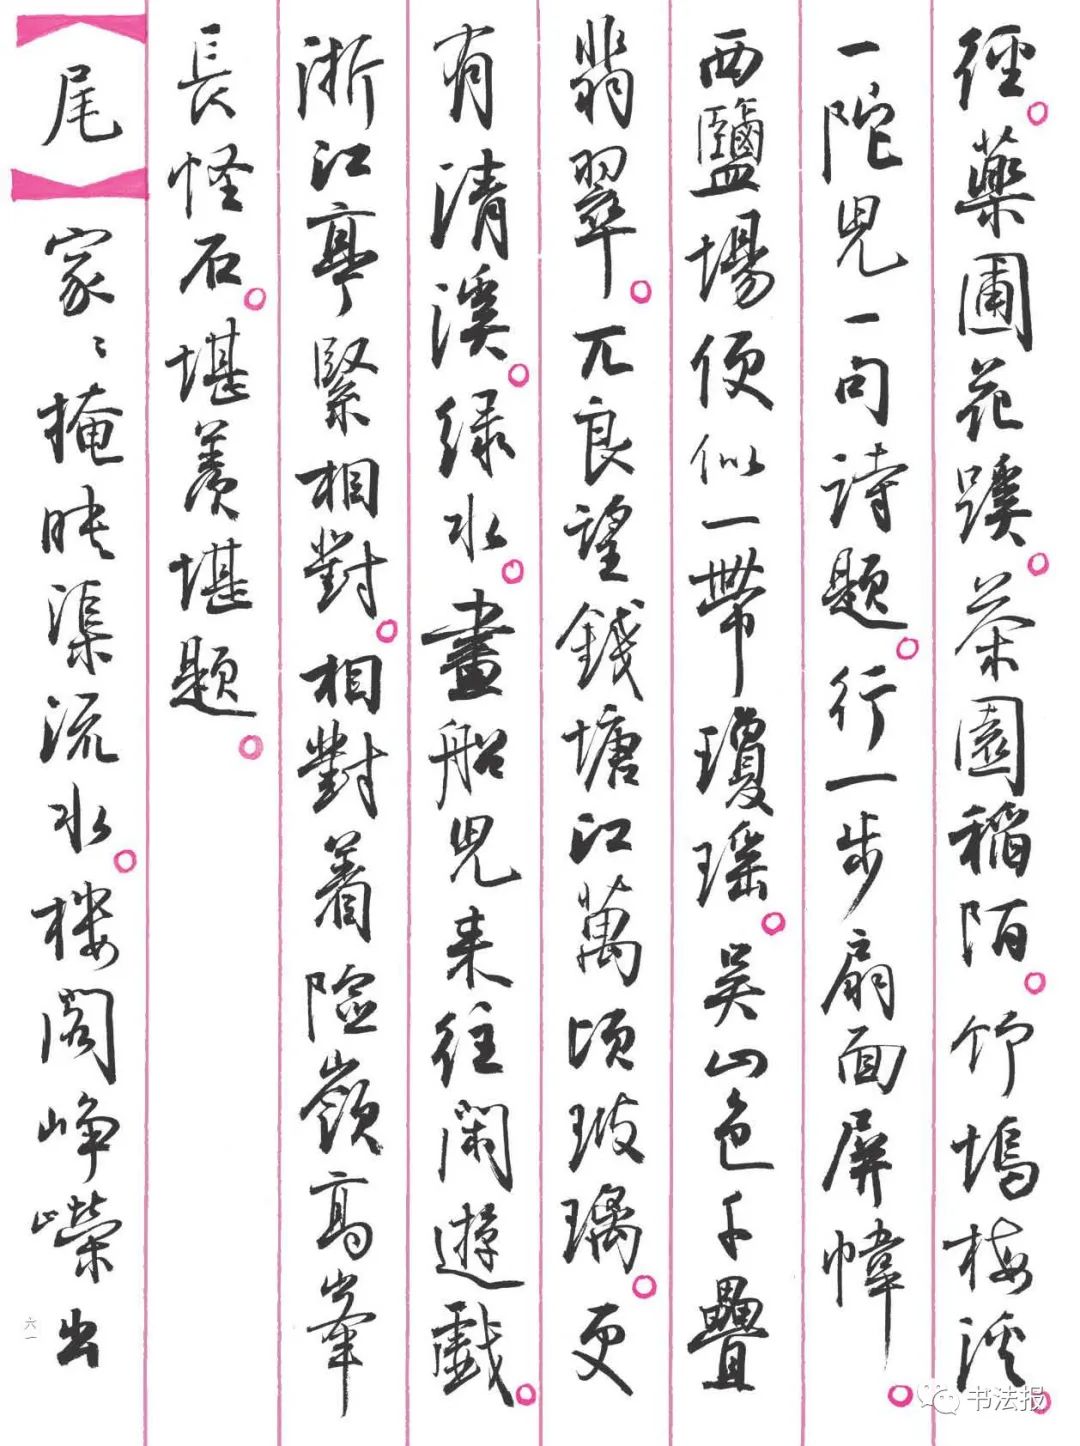 徑。藥圃花蹊。茶園稻陌。竹塢梅溪。
一陀兒一句詩题。行一步扇面屏幃。
西鹽場便似一帶瓊瑶。吴山色千疊
翡翠。兀良望錢塘江萬頃玻璃。更
有清溪。绿水。畫船兒来往閑遊戲。
浙江亭緊相對。相對着險嶺高峯
長怪石。堪羨堪题。
【尾】家々掩映渠流水。楼閣峥嶸出
六一
书法报